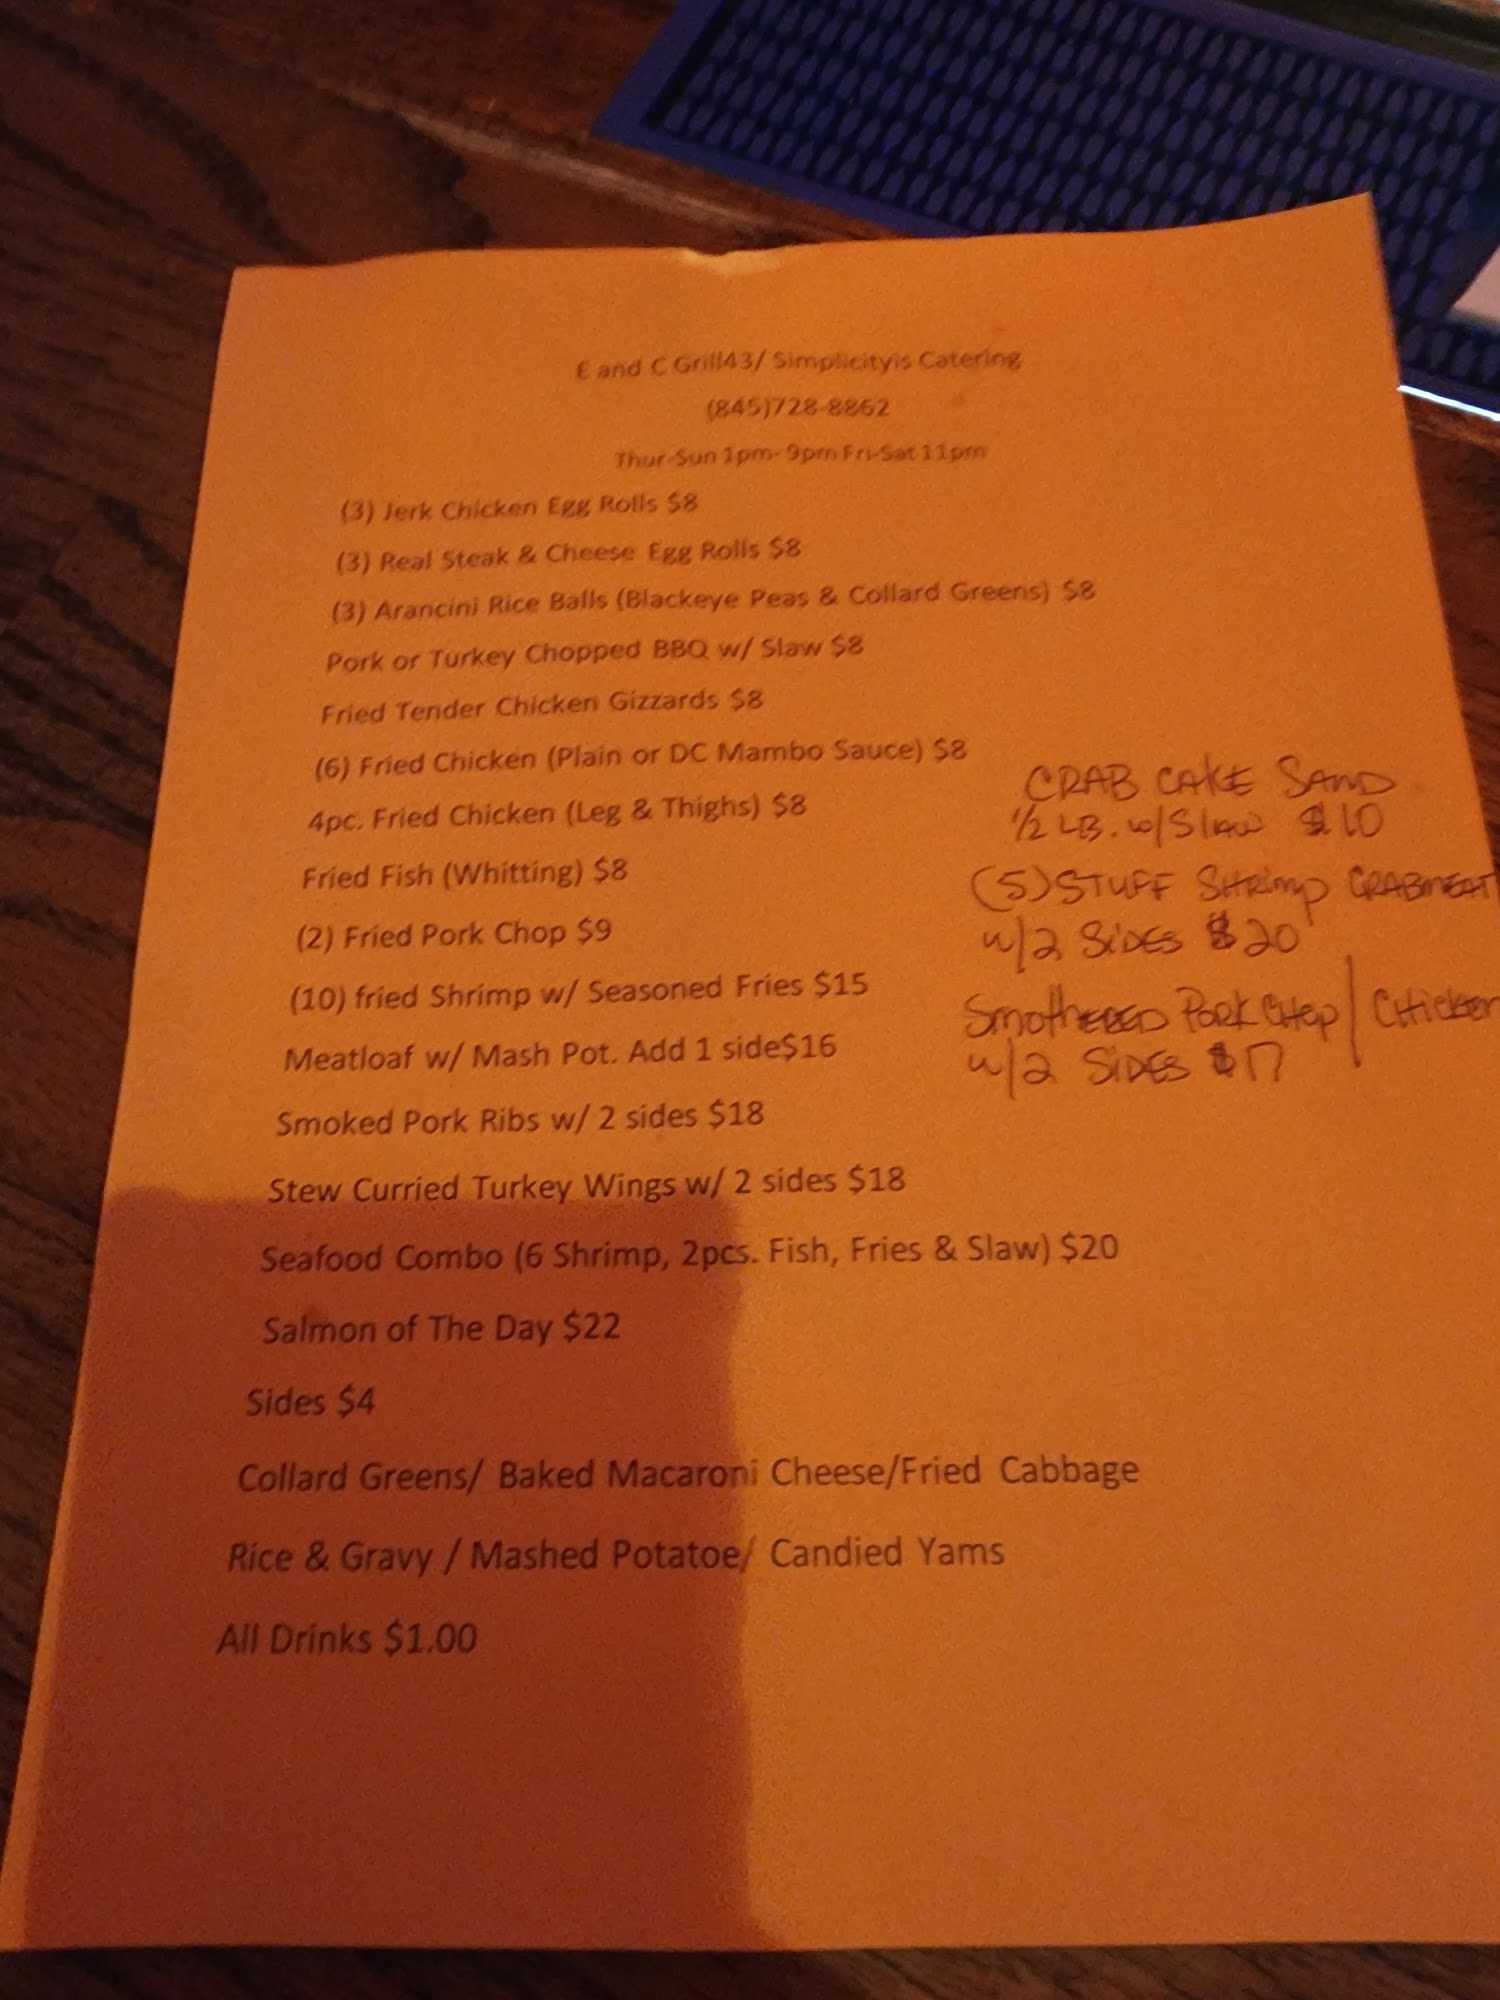 E and C Grill43/ Simplicityis Catering
(845)728-8862
Thur-Sun 1pm- 9pm Fri-Sat 11pm
(3) Jerk Chicken Egg Rolls $8
(3) Real Steak & Cheese Egg Rolls $8
(3) Arancini Rice Balls (Blackeye Peas & Collard Greens) $8
Pork or Turkey Chopped BBQ w/ Slaw $8
Fried Tender Chicken Gizzards $8
(6) Fried Chicken (Plain or DC Mambo Sauce) $8
4pc. Fried Chicken (Leg & Thighs) $8
Fried Fish (Whitting) $8
(2) Fried Pork Chop $9
(10) fried Shrimp w/ Seasoned Fries $15
Meatloaf w/ Mash Pot. Add 1 side$16
Smoked Pork Ribs w/ 2 sides $18
Stew Curried Turkey Wings w/ 2 sides $18
Seafood Combo (6 Shrimp, 2pcs. Fish, Fries & Slaw) $20
Salmon of The Day $22
Sides $4
Collard Greens/ Baked Macaroni Cheese/Fried Cabbage
Rice & Gravy / Mashed Potatoe/ Candied Yams
All Drinks $1.00
CRAB CAKE SAND
1/2 LB. w/Slaw $10
(5) STUFF SHRimp CRABMEAT
w/2 SiDES $20
SmothERED PORK CHOP / CHicken
w/2 SiDES $17